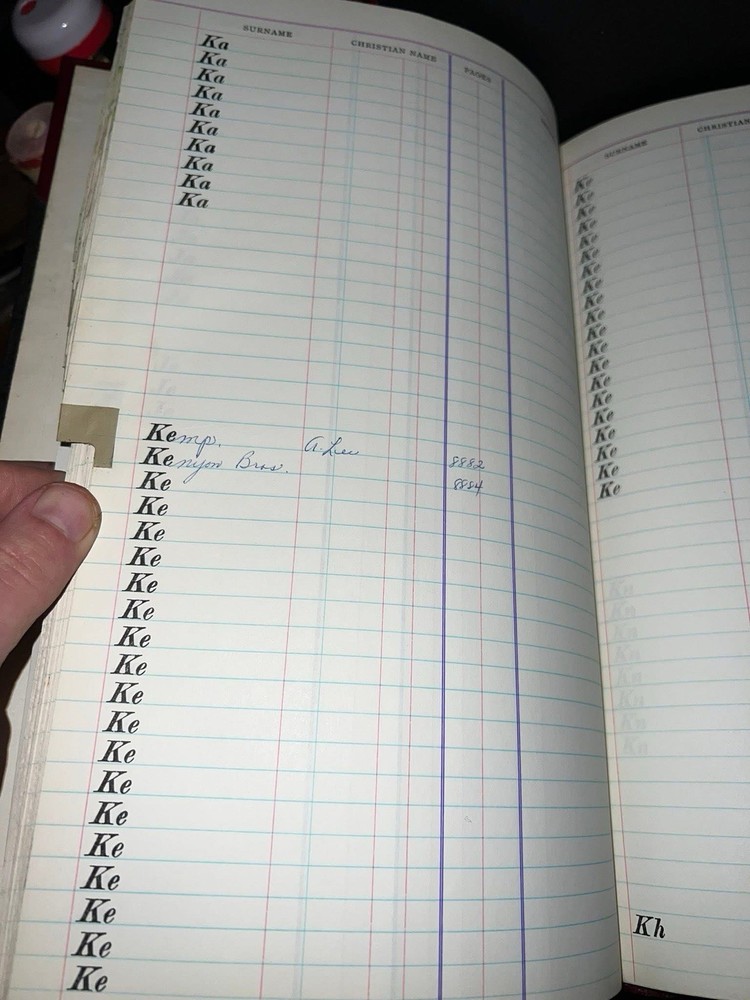 SURNAME CHRISTIAN NAME PAGES
Ka
Ka
Ka
Ka
Ka
Ka
Ka
Ka
Ka
Ka
Kemp. A. Lee 8882
Kenyon Bros. 8884
Ke
Ke
Ke
Ke
Ke
Ke
Ke
Ke
Ke
Ke
Ke
Ke
Ke
Ke
Ke
Ke
Ke
Ke
SURNAME CHRISTIAN
Ke
Ke
Ke
Ke
Ke
Ke
Ke
Ke
Ke
Ke
Ke
Ke
Ke
Ke
Ke
Ke
Ke
Ke
Ke
Kh